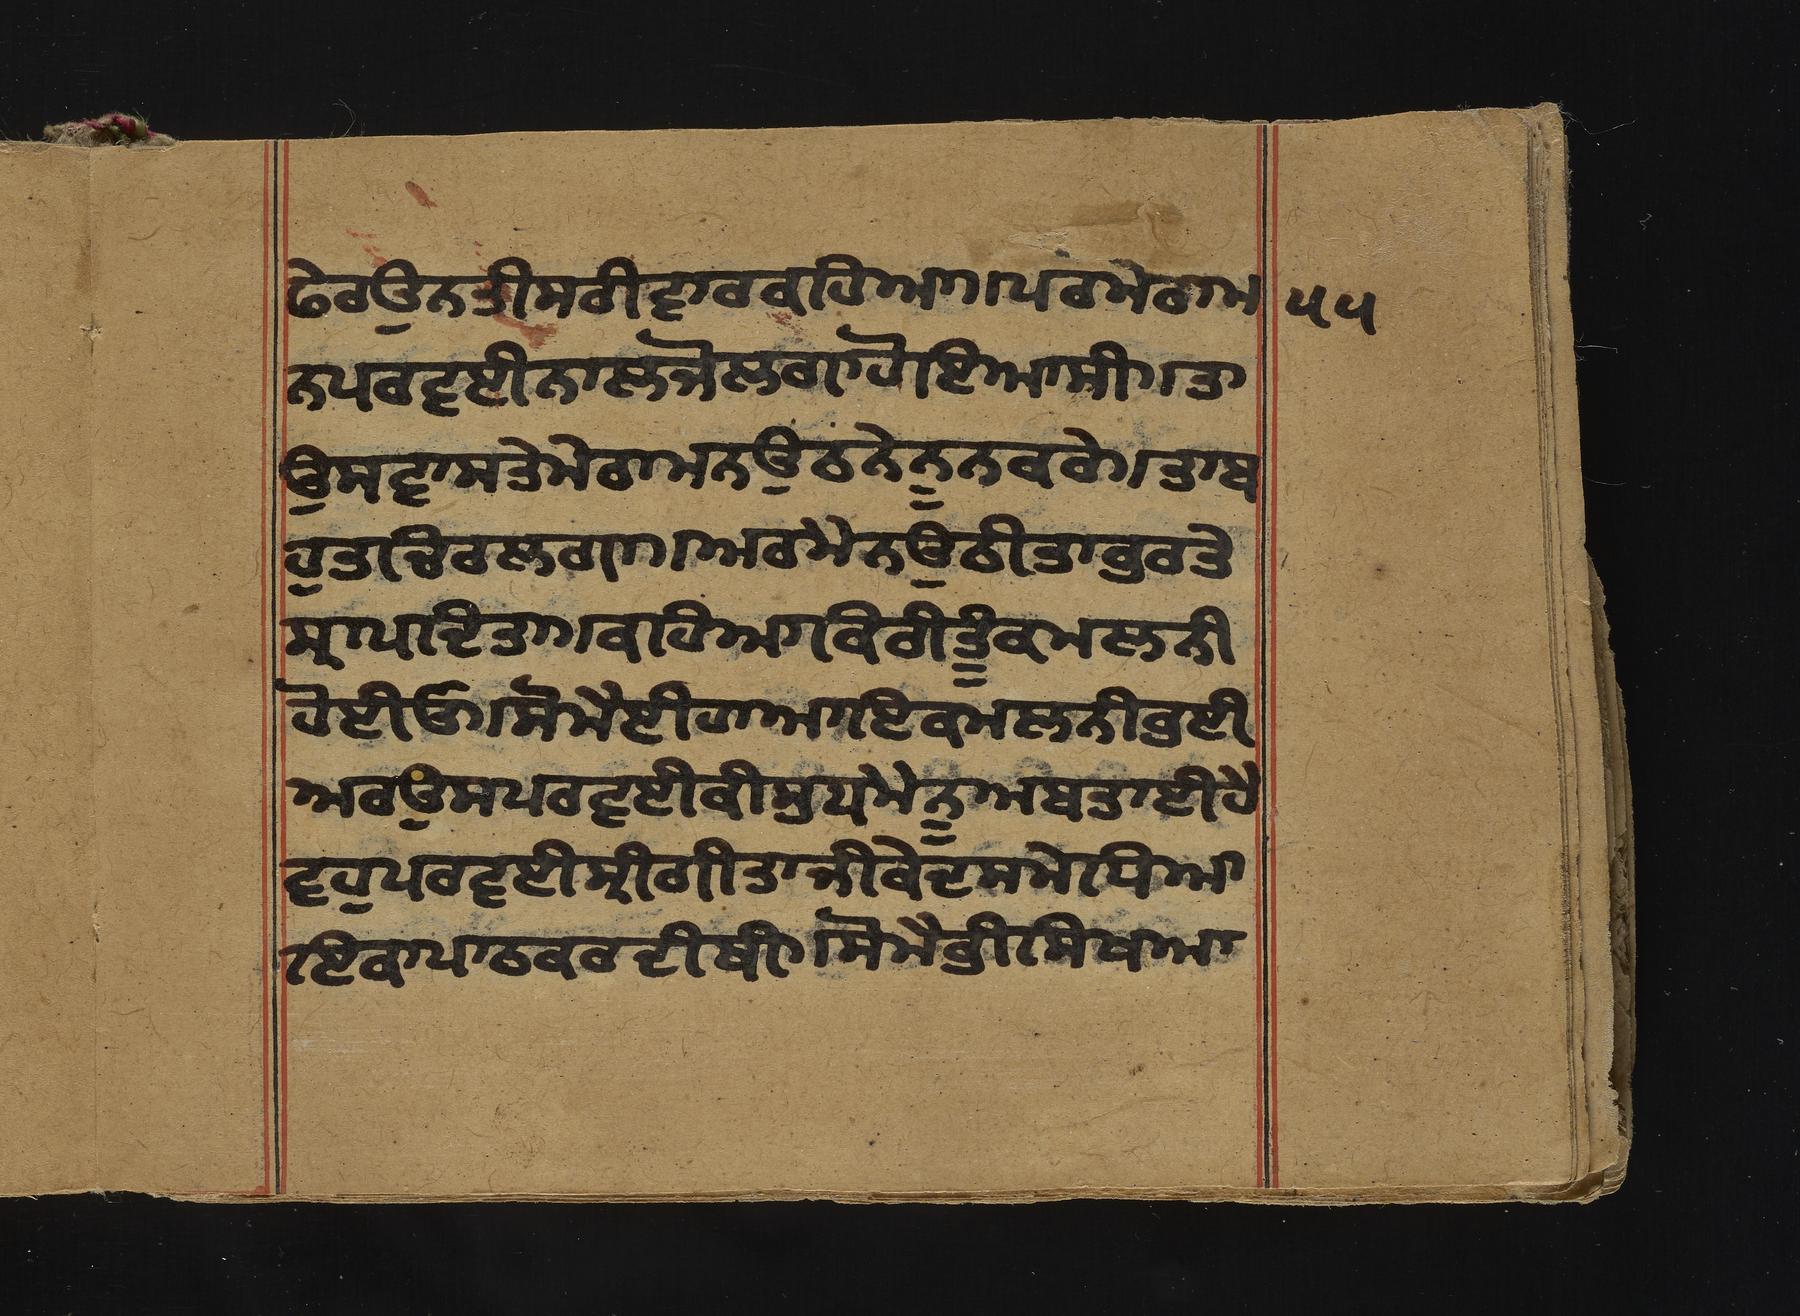 ਫੇਰਉਨਤੀਸਰੀਵਾਰਕਹਿਆ।ਪਰਮੇਰਾਮ ੫੫
ਨਪਰਵਈਨਾਲਜੋਲਗਾਹੋਇਆਸੀ।ਤਾ
ਉਸਵਾਸਤੇਮੇਰਾਮਨਉਠਨੇਨੂਨਕਰੇ।ਤਾਬ
ਹੁਤਚਿਰਲਗਾ।ਅਰਮੈਨਉਠੀਤਾਬੁਰਤੇ
ਸ੍ਰਾਪਦਿਤਾ।ਕਹਿਆਕਿਰੀਤੂੰਕਮਲਨੀ
ਹੋਈਓ।ਸੋਮੈਈਹਾਆਇਕਮਲਨੀਭੁਈ
ਅਰਉਸਪਰਵਈਕੀਸੁਧਮੈਨੂਅਬਤਾਈਹੈ
ਵਹੁਪਰਵਈਸ੍ਰੀਗੀਤਾਜੀਕੇਦਸਮੇਧਿਆ
ਇਕਾਪਾਠਕਰਦੀਥੀ।ਸੋਮੈਭੀਸਿਖਆ